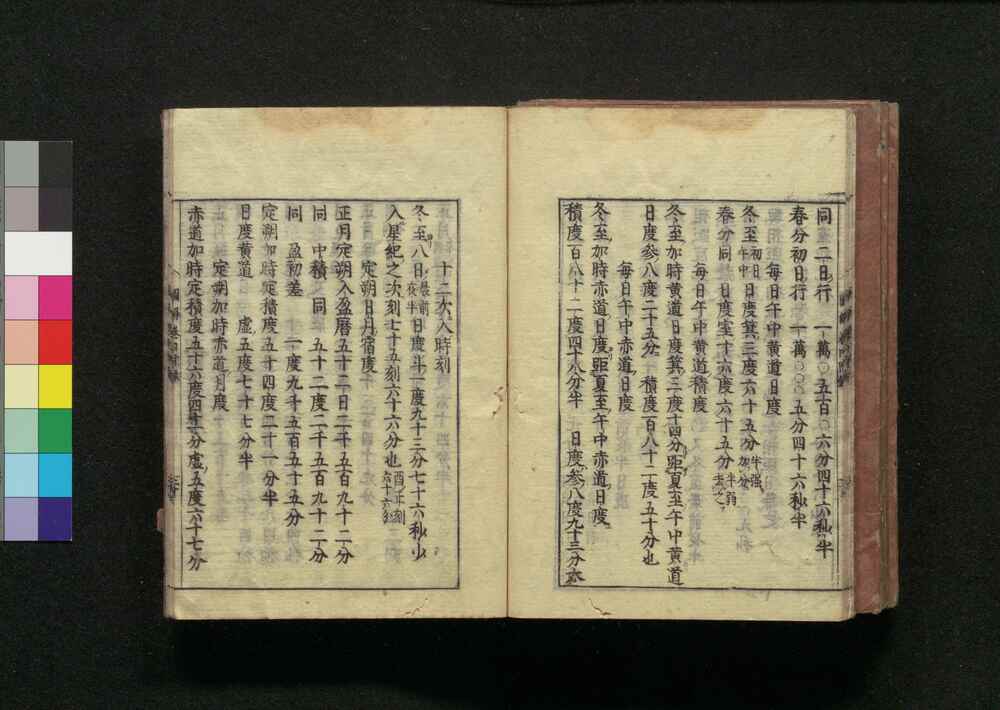 同　二日行　一萬〇五百〇六分四十六秒半
春分初日行　一萬〇〇五分四十六秒半
每日午中黄道日度
冬至初日午中日度箕三度六十五分半强加分
春分同　日度室十六度六十五分半弱去之
每日午中黄道積度
冬至加時黄道日度箕三度十四分距夏至午中黄道
日度參八度二十五分　積度百八十二度五十分也
每日午中赤道日度
冬至加時赤道日度距夏至午中赤道日度
積度百八十二度四十八分半　日度參八度九十三分太
十二次入時刻
冬至八日最前夜半日度斗一度九十三分七十六秒少
入星紀之次刻七十五刻六十六分也酉正刻六十六分
定朔日月宿度
正月定朔入盈暦五十二日二千五百九十二分
同　中積　同　五十二度二千五百九十二分
同　盈初差　一度九千五百五十五分
定朔加時定積度五十四度二十一分半
日度黄道　虚五度七十七分半
定朔加時赤道月度
赤道加時定積度五十六度四十一分虚五度六十七分